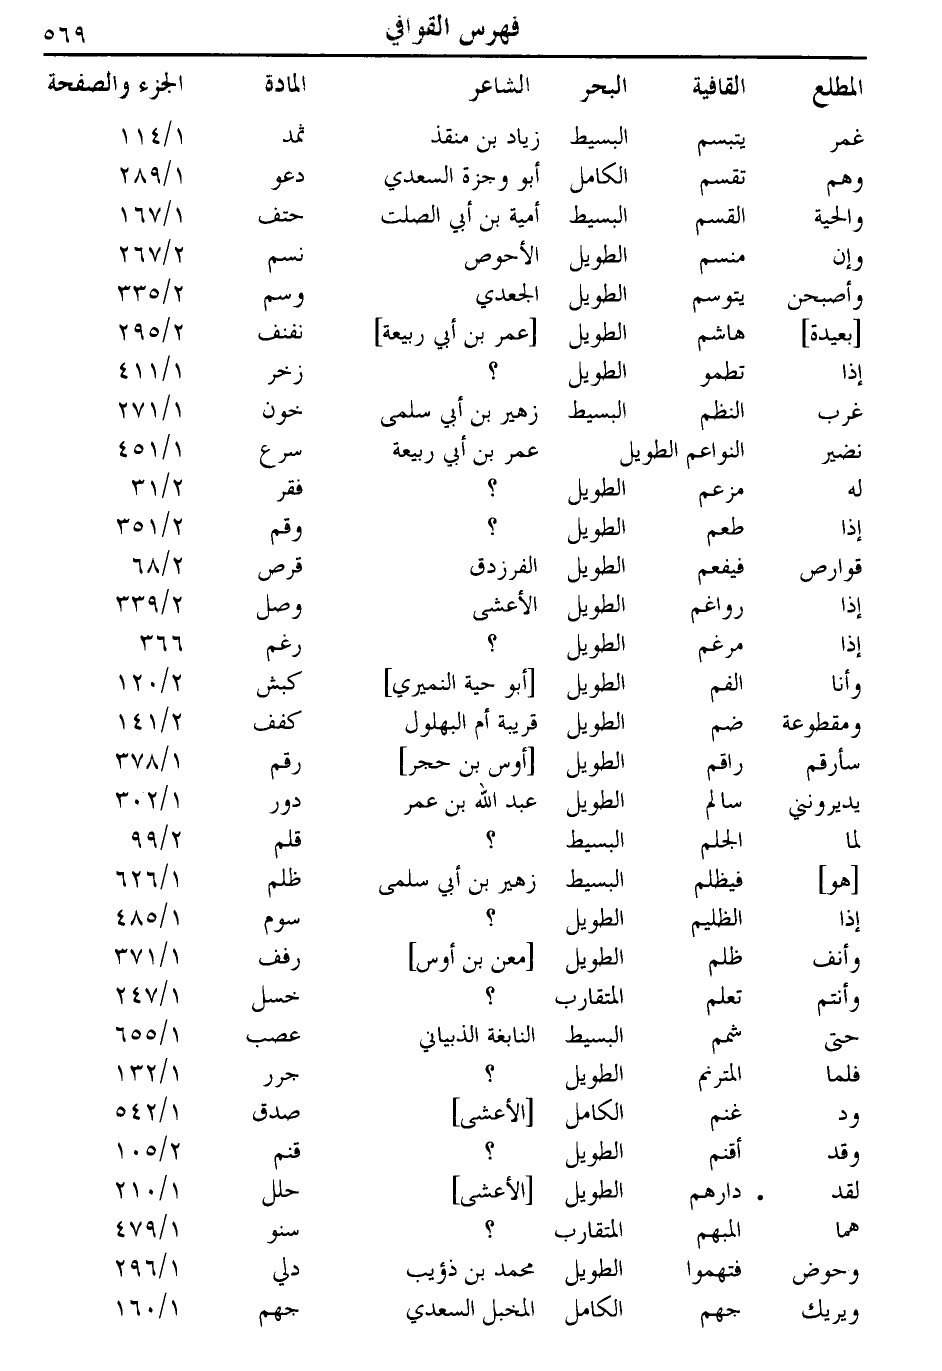 فهرس القوافي ٥٦٩
المطلع القافية البحر الشاعر المادة الجزء والصفحة
غمر يتبسم البسيط زياد بن منقذ ثمد ١١٤/١
وهم تقسم الكامل أبو وجزة السعدي دعو ٢٨٩/١
والحية القسم البسيط أمية بن أبي الصلت حتف ١٦٧/١
وإن منسم الطويل الأحوص نسم ٢٦٧/٢
وأصبحن يتوسم الطويل الجعدي وسم ٣٣٥/٢
[بعيدة] هاشم الطويل [عمر بن أبي ربيعة] نفنف ٢٩٥/٢
إذا تطمو الطويل ؟ زخر ٤١١/١
غرب النظم البسيط زهير بن أبي سلمى خون ٢٧١/١
نضير النواعم الطويل عمر بن أبي ربيعة سرع ٤٥١/١
له مزعم الطويل ؟ فقر ٣١/٢
إذا طعم الطويل ؟ وقم ٣٥١/٢
قوارص فيفعم الطويل الفرزدق قرص ٦٨/٢
إذا رواغم الطويل الأعشى وصل ٣٣٩/٢
إذا مرغم الطويل ؟ رغم ٣٦٦
وأنا الفم الطويل [أبو حية النميري] كبش ١٢٠/٢
ومقطوعة ضم الطويل قريبة أم البهلول كفف ١٤١/٢
سأرقم راقم الطويل [أوس بن حجر] رقم ٣٧٨/١
يديرونني سالم الطويل عبد الله بن عمر دور ٣٠٢/١
لما الجلم البسيط ؟ قلم ٩٩/٢
[هو] فيظلم البسيط زهير بن أبي سلمى ظلم ٦٢٦/١
إذا الظليم الطويل ؟ سوم ٤٨٥/١
وأنف ظلم الطويل [معن بن أوس] رفف ٣٧١/١
وأنتم تعلم المتقارب ؟ خسل ٢٤٧/١
حتى شمم البسيط النابغة الذبياني عصب ٦٥٥/١
فلما المترنم الطويل ؟ جرر ١٣٢/١
ود غنم الكامل [الأعشى] صدق ٥٤٢/١
وقد أقنم الطويل ؟ قنم ١٠٥/٢
لقد . دارهم الطويل [الأعشى] حلل ٢١٠/١
هما المبهم المتقارب ؟ سنو ٤٧٩/١
وحوض فتهموا الطويل محمد بن ذؤيب دلي ٢٩٦/١
ويريك جهم الكامل المخبل السعدي جهم ١٦٠/١